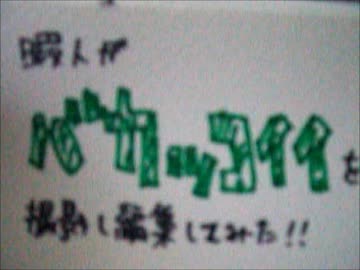 暇人が
バカッコイイを
撮影し編集してみた!!